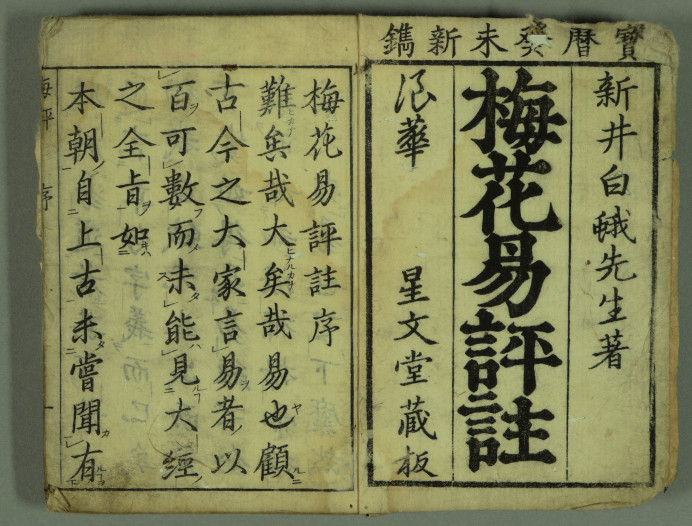 寶曆癸未新鐫
新井白蛾先生著
梅花易評註
浪華 星文堂藏板
梅花易評註序
難矣哉大矣哉易也顧
古今之大家言易者以
百可數而未能見大經
之全旨如
本朝自上古未嘗聞有
梅評 序